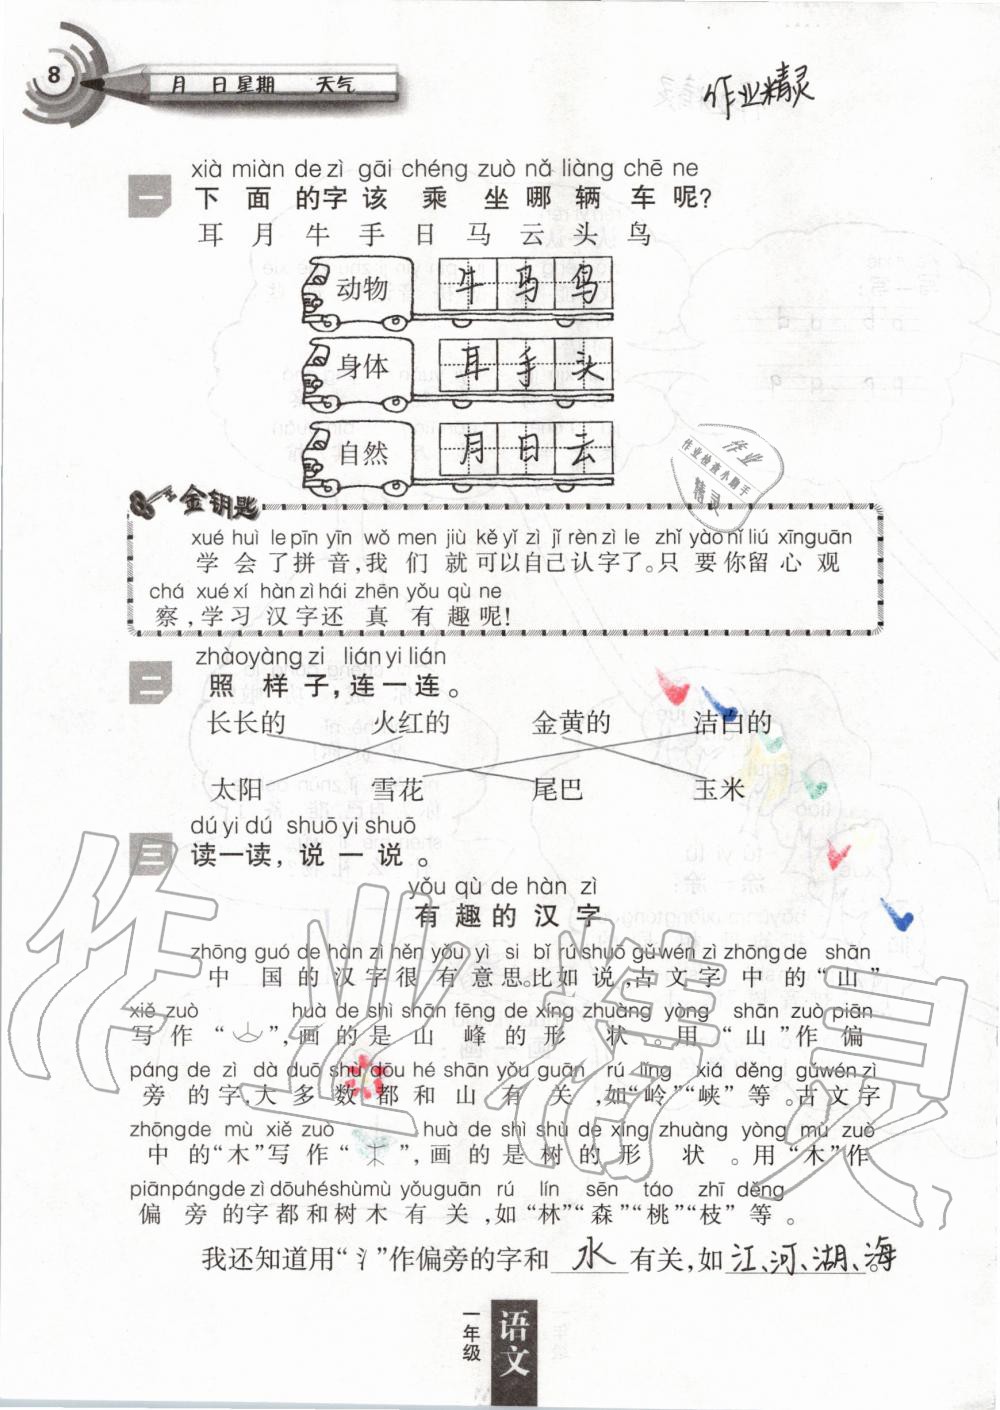 8
月 日 星期 天气
作业精灵
xià miàn de zì gāi chéng zuò nǎ liàng chē ne
一 下面的字该乘坐哪辆车呢?
耳 月 牛 手 日 马 云 头 鸟
动物 牛 马 鸟
身体 耳 手 头
自然 月 日 云
作业
作业检查小助手
精灵
金钥匙
xué huì le pīn yīn wǒ men jiù kě yǐ zì jǐ rèn zì le zhǐ yào nǐ liú xīn guān
学会了拼音,我们就可以自己认字了。只要你留心观
chá xué xí hàn zì hái zhēn yǒu qù ne
察,学习汉字还真有趣呢!
zhào yàng zi lián yi lián
二 照样子,连一连。
长长的 火红的 金黄的 洁白的
太阳 雪花 尾巴 玉米
dú yi dú shuō yi shuō
三 读一读,说一说。
yǒu qù de hàn zì
有趣的汉字
zhōng guó de hàn zì hěn yǒu yì si bǐ rú shuō gǔ wén zì zhōng de shān
中国的汉字很有意思。比如说,古文字中的“山”
xiě zuò huà de shì shān fēng de xíng zhuàng yòng shān zuò piān
写作“ ”,画的是山峰的形状。用“山”作偏
páng de zì dà duō shù dōu hé shān yǒu guān rú lǐng xiá děng gǔ wén zì
旁的字,大多数都和山有关,如“岭”“峡”等。古文字
zhōng de mù xiě zuò huà de shì shù de xíng zhuàng yòng mù zuò
中的“木”写作“ ”,画的是树的形状。用“木”作
piān páng de zì dōu hé shù mù yǒu guān rú lín sēn táo zhī děng
偏旁的字都和树木有关,如“林”“森”“桃”“枝”等。
我还知道用“氵”作偏旁的字和 水 有关,如 江、河、湖、海。
一年级 语文
作业精灵